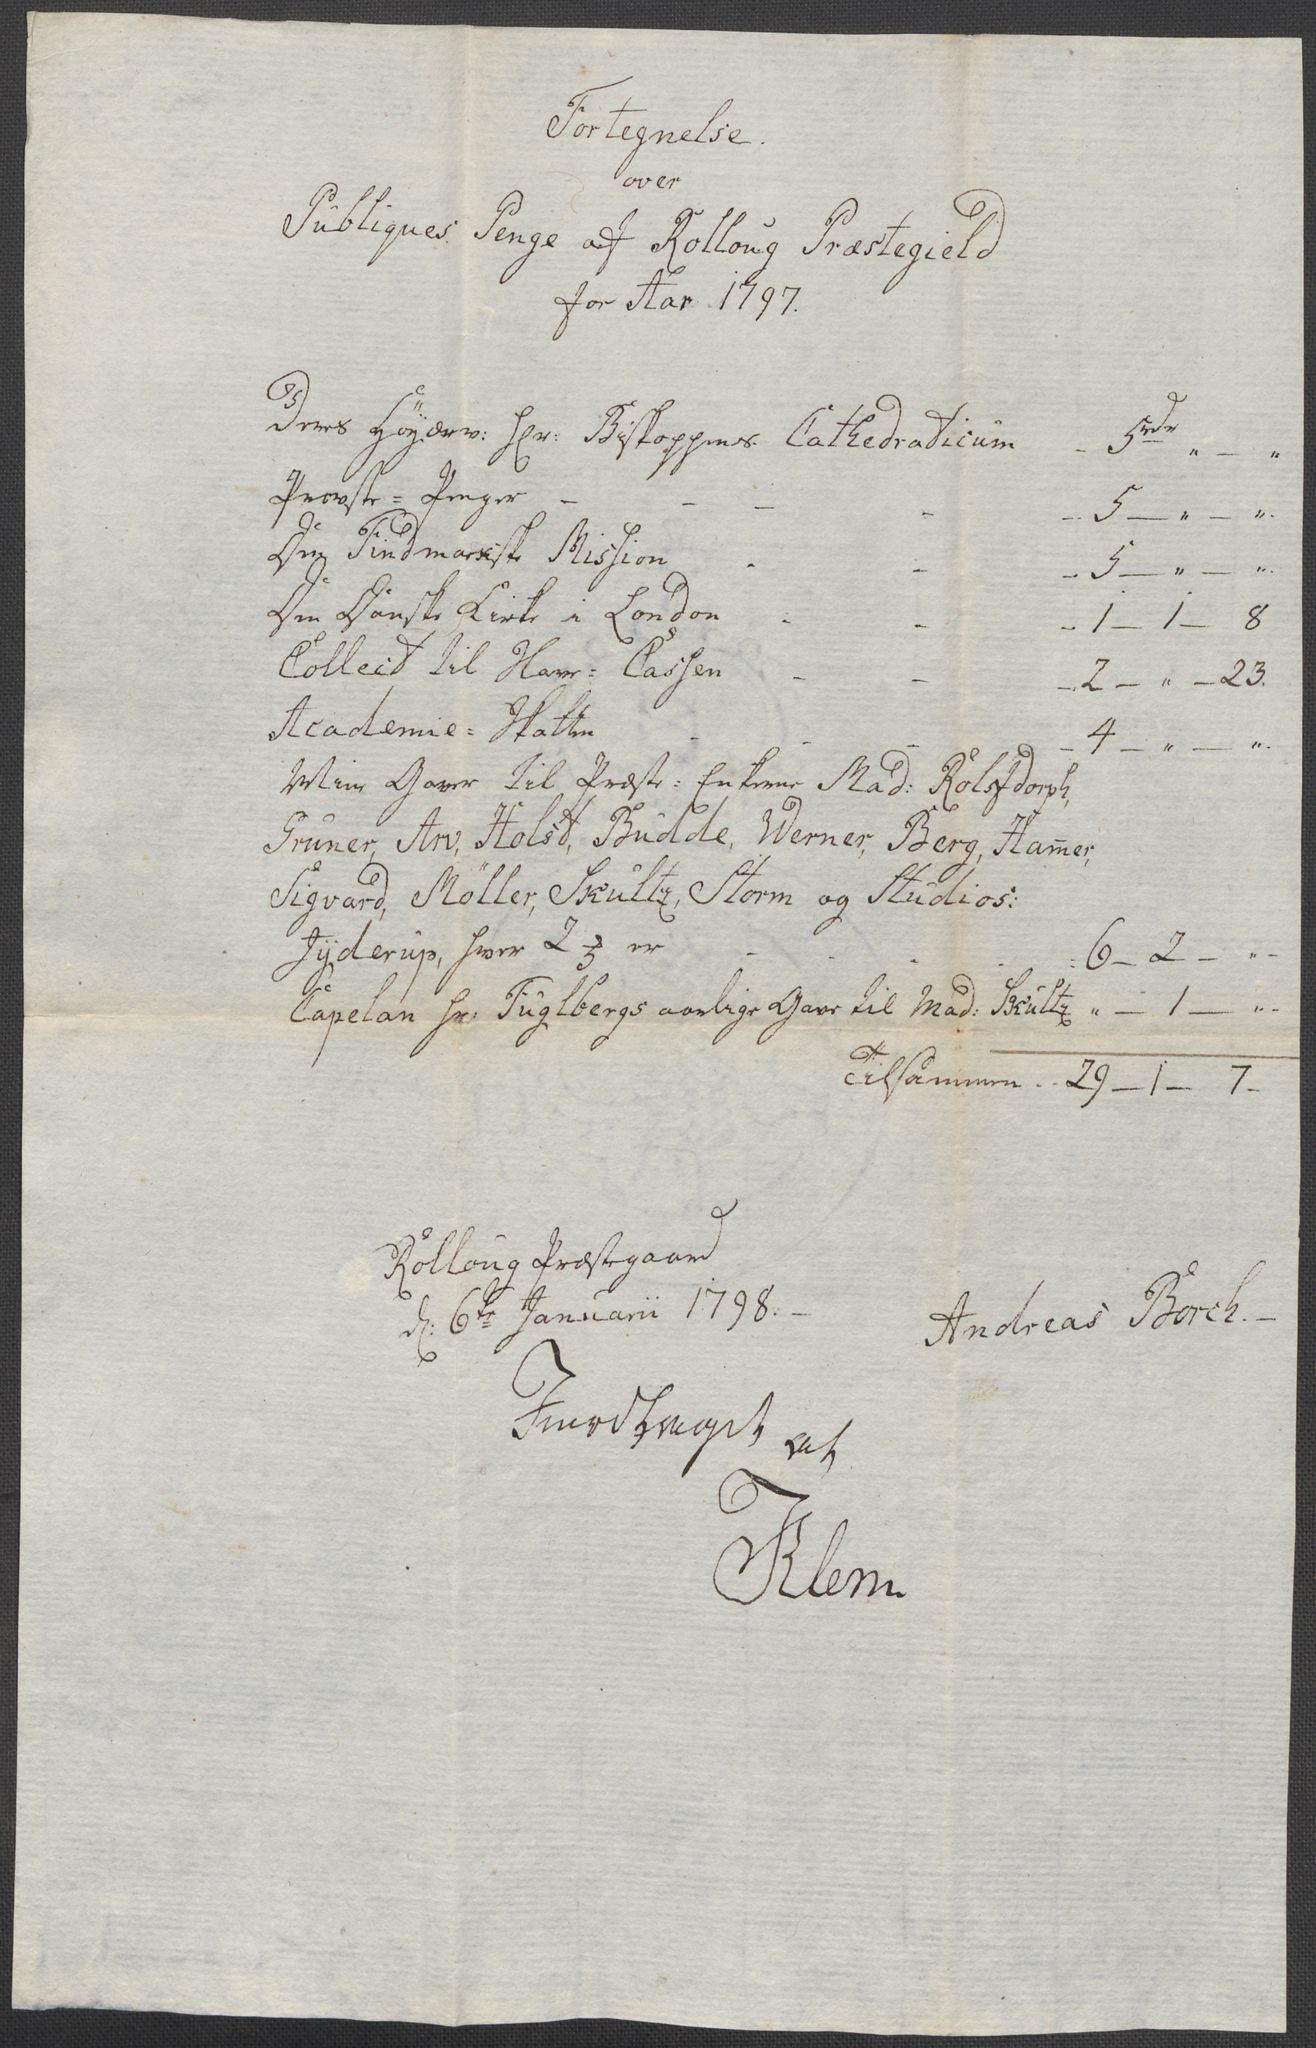 Fortegnelse.
over
Publiques Penge af Rolloug Præstegield
for Aar 1797.
Deres Høyærv: Hr: Biskoppens Cathedraticum - 5 rdr " — "
Provste = Penger - - - - - 5 — " — "
Den Findmarkske Mission - - - 5 — " — "
Den Danske Kirke i London - - - 1 — 1 — 8
Collect til Havne = Cassen - - - 2 — " — 23.
Academie = Skatten - - - - 4 — " — "
Mine Gaver til Præste = Enkerne Mad: Rolsfdorph,
Gruner, Arv, Holst, Budde, Werner, Berg, Ham̅er,
Sigvard, Møller, Skultz, Storm og Studios:
Jÿderup, hver 2 ⅔ er - - - - 6 — 2 — "
Capelan Hr: Fuglbergs aarlige Gave til Mad: Skultz " — 1 — "
Tilsammen - - 29 — 1 — 7 -
Rolloug Præstegaard
d: 6te Januarii 1798. -
Andreas Borch. -
af
Klem